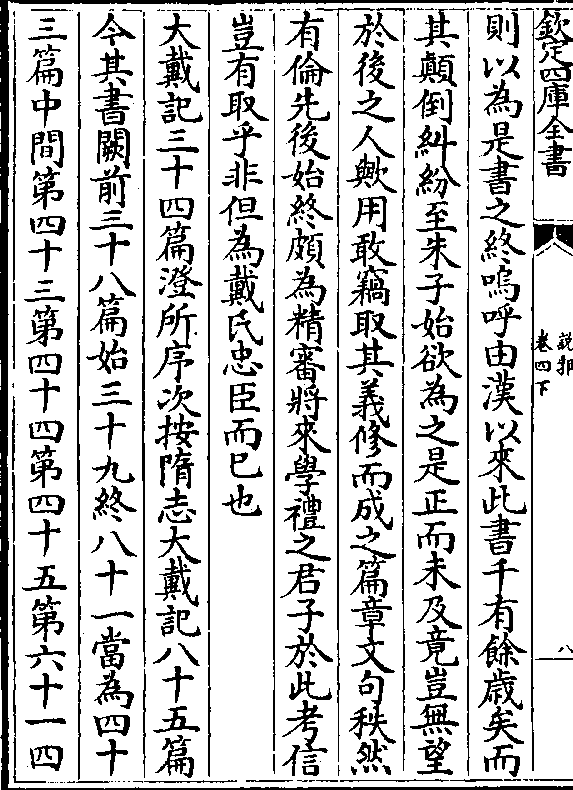 欽定四庫全書
說郛
卷四下
八
則以為是書之終嗚呼由漢以來此書千有餘歲矣而
其顛倒糾紛至朱子始欲為之是正而未及竟豈無望
於後之人歟用敢竊取其義修而成之篇章文句秩然
有倫先後始終頗為精審將來學禮之君子於此考信
豈有取乎非但為戴氏忠臣而已也
大戴記三十四篇澄所序次按隋志大戴記八十五篇
今其書闕前三十八篇始三十九終八十一當為四十
三篇中間第四十三第四十四第四十五第六十一四